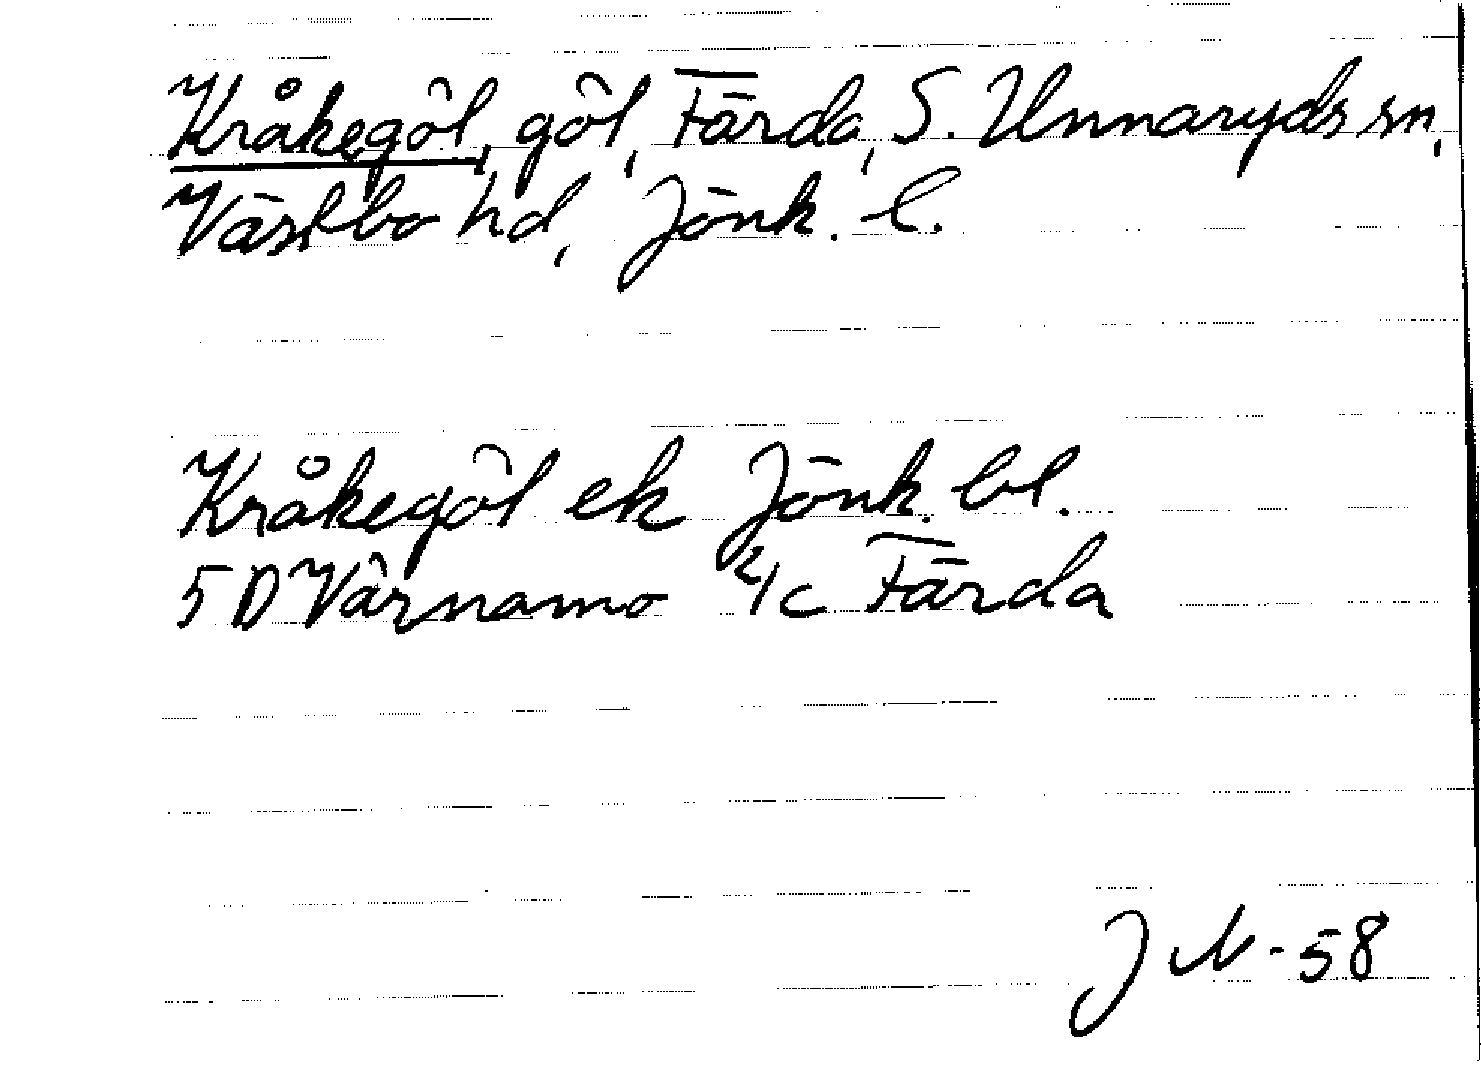 Kråkegöl, göl, Färda, S. Unnaryds sn,
Västbo hd, Jönk. l.
Kråkegöl ek Jönk. bl.
5D Värnamo 4/c Färda
JN-58